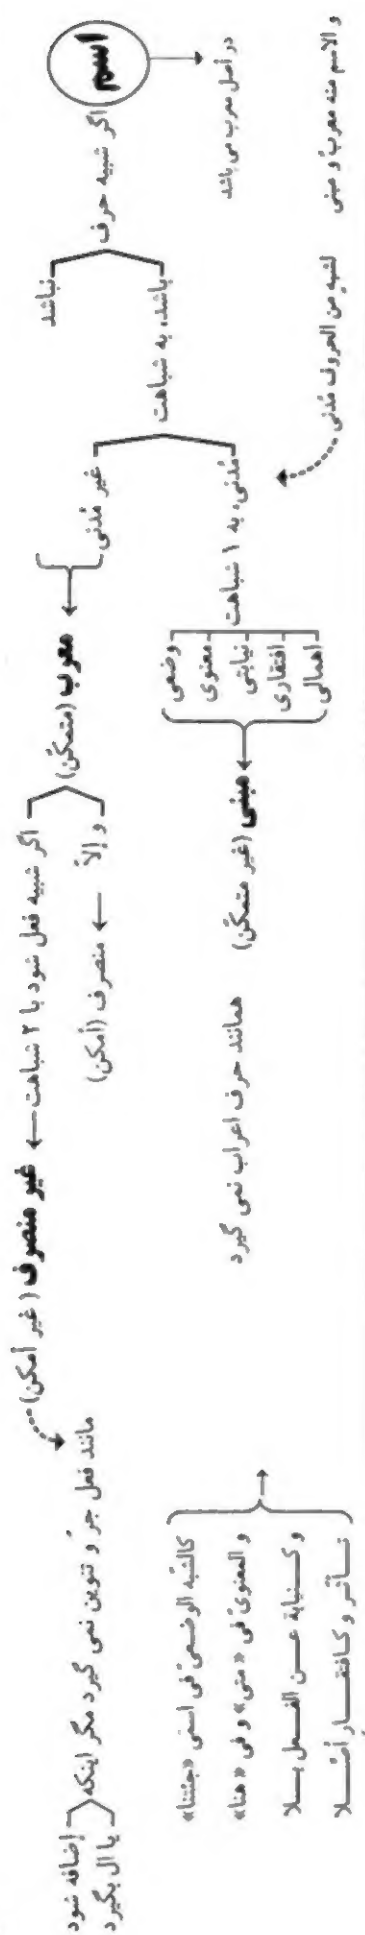 و الاسم منه معربٌ و مبنی
لشبهٍ من الحروف مُدنی
اسم
در أصل معرب می باشد
اگر شبیه حرف
نباشد
باشد، به شباهت
غیر مُدنی
مُدنی، به ۱ شباهت
وضعی
معنوی
نیابتی
افتقاری
اهمالی
معرب (متمکّن)
مبنی (غیر متمکّن)
همانند حرف اعراب نمی گیرد
اگر شبیه فعل شود با ۲ شباهت
غیر منصرف (غیر أمکن)
و إلاّ
منصرف (أمکن)
مانند فعل جرّ و تنوین نمی گیرد مگر اینکه
إضافه شود
یا ال بگیرد
کالشبه الوضعیّ فی اسمی «جئتنا»
و المعنویّ فی «متی» و فی «هنا»
و کنیابة عن الفعل بلا
تأثر و کافتقار أُصّلا